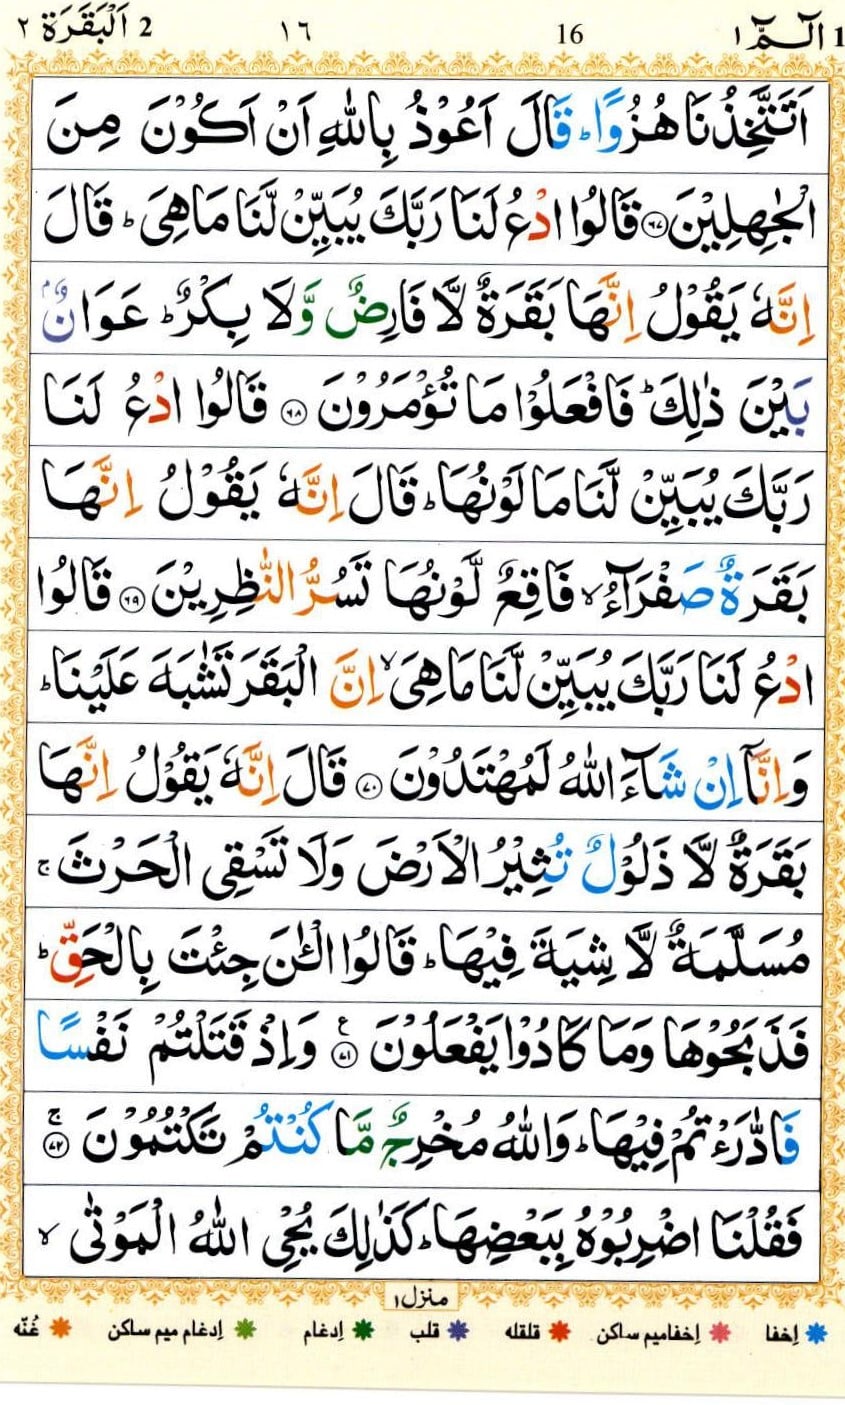 1 الٓـمّٓ ١ 16 ١٦ 2 اَلْبَقَرَة ٢
اَتَتَّخِذُنَا هُزُوًا ؕ قَالَ اَعُوْذُ بِاللّٰهِ اَنْ اَكُوْنَ مِنَ
الْجٰهِلِيْنَ ۝۶۷ قَالُوا ادْعُ لَنَا رَبَّكَ يُبَيِّنْ لَّنَا مَا هِىَ ؕ قَالَ
اِنَّهٗ يَقُوْلُ اِنَّهَا بَقَرَةٌ لَّا فَارِضٌ وَّلَا بِكْرٌ ؕ عَوَانٌۢ
بَيْنَ ذٰلِكَ ؕ فَافْعَلُوْا مَا تُؤْمَرُوْنَ ۝۶۸ قَالُوا ادْعُ لَنَا
رَبَّكَ يُبَيِّنْ لَّنَا مَا لَوْنُهَا ؕ قَالَ اِنَّهٗ يَقُوْلُ اِنَّهَا
بَقَرَةٌ صَفْرَآءُ ۙ فَاقِعٌ لَّوْنُهَا تَسُرُّ النّٰظِرِيْنَ ۝۶۹ قَالُوا
ادْعُ لَنَا رَبَّكَ يُبَيِّنْ لَّنَا مَا هِىَ ۙ اِنَّ الْبَقَرَ تَشٰبَهَ عَلَيْنَا ؕ
وَاِنَّآ اِنْ شَآءَ اللّٰهُ لَمُهْتَدُوْنَ ۝۷۰ قَالَ اِنَّهٗ يَقُوْلُ اِنَّهَا
بَقَرَةٌ لَّا ذَلُوْلٌ تُثِيْرُ الْاَرْضَ وَلَا تَسْقِى الْحَرْثَ ۚ
مُسَلَّمَةٌ لَّا شِيَةَ فِيْهَا ؕ قَالُوا الْـٰٔنَ جِئْتَ بِالْحَقِّ ؕ
فَذَبَحُوْهَا وَمَا كَادُوْا يَفْعَلُوْنَ ۝۷۱ ع وَاِذْ قَتَلْتُمْ نَفْسًا
فَادّٰرَءْتُمْ فِيْهَا ؕ وَاللّٰهُ مُخْرِجٌ مَّا كُنْتُمْ تَكْتُمُوْنَ ۝۷۲ ۚ
فَقُلْنَا اضْرِبُوْهُ بِبَعْضِهَا ؕ كَذٰلِكَ يُحْىِ اللّٰهُ الْمَوْتٰى ۙ
منزل ١
اِخفا اِخفامیم ساکن قلقله قلب اِدغام اِدغام میم ساکن غُنّه